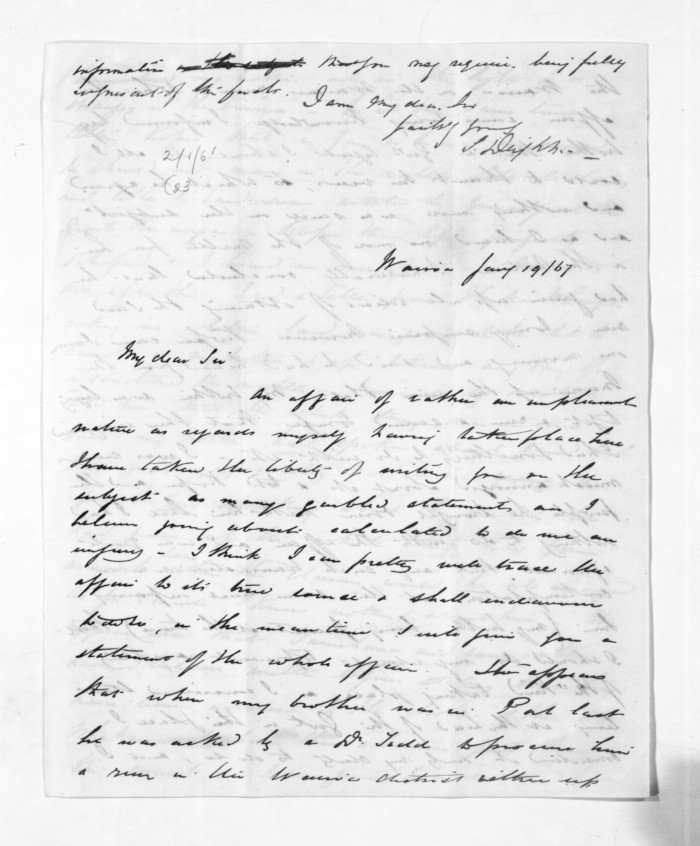 information you may require. being fully
cognisant of the facts.
I am My dear Sir
faithf yours
S. Deighton
2/1/6
(23
Wairoa Jany 19/67
My dear Sir
An affair of rather an unpleasant
nature as regards myself having taken place here
I have taken the liberty of writing you on the
subject as many garbled statements are I
believe going about calculated to do me an
injury - I think I can pretty well trace the
affair to its true source & shall endeavour
to do so, in the meantime I will give you a
statement of the whole affair. It appears
that when my brother was in Port last
he was asked by a Dr. Todd to procure him
a run in the Wairoa district either up